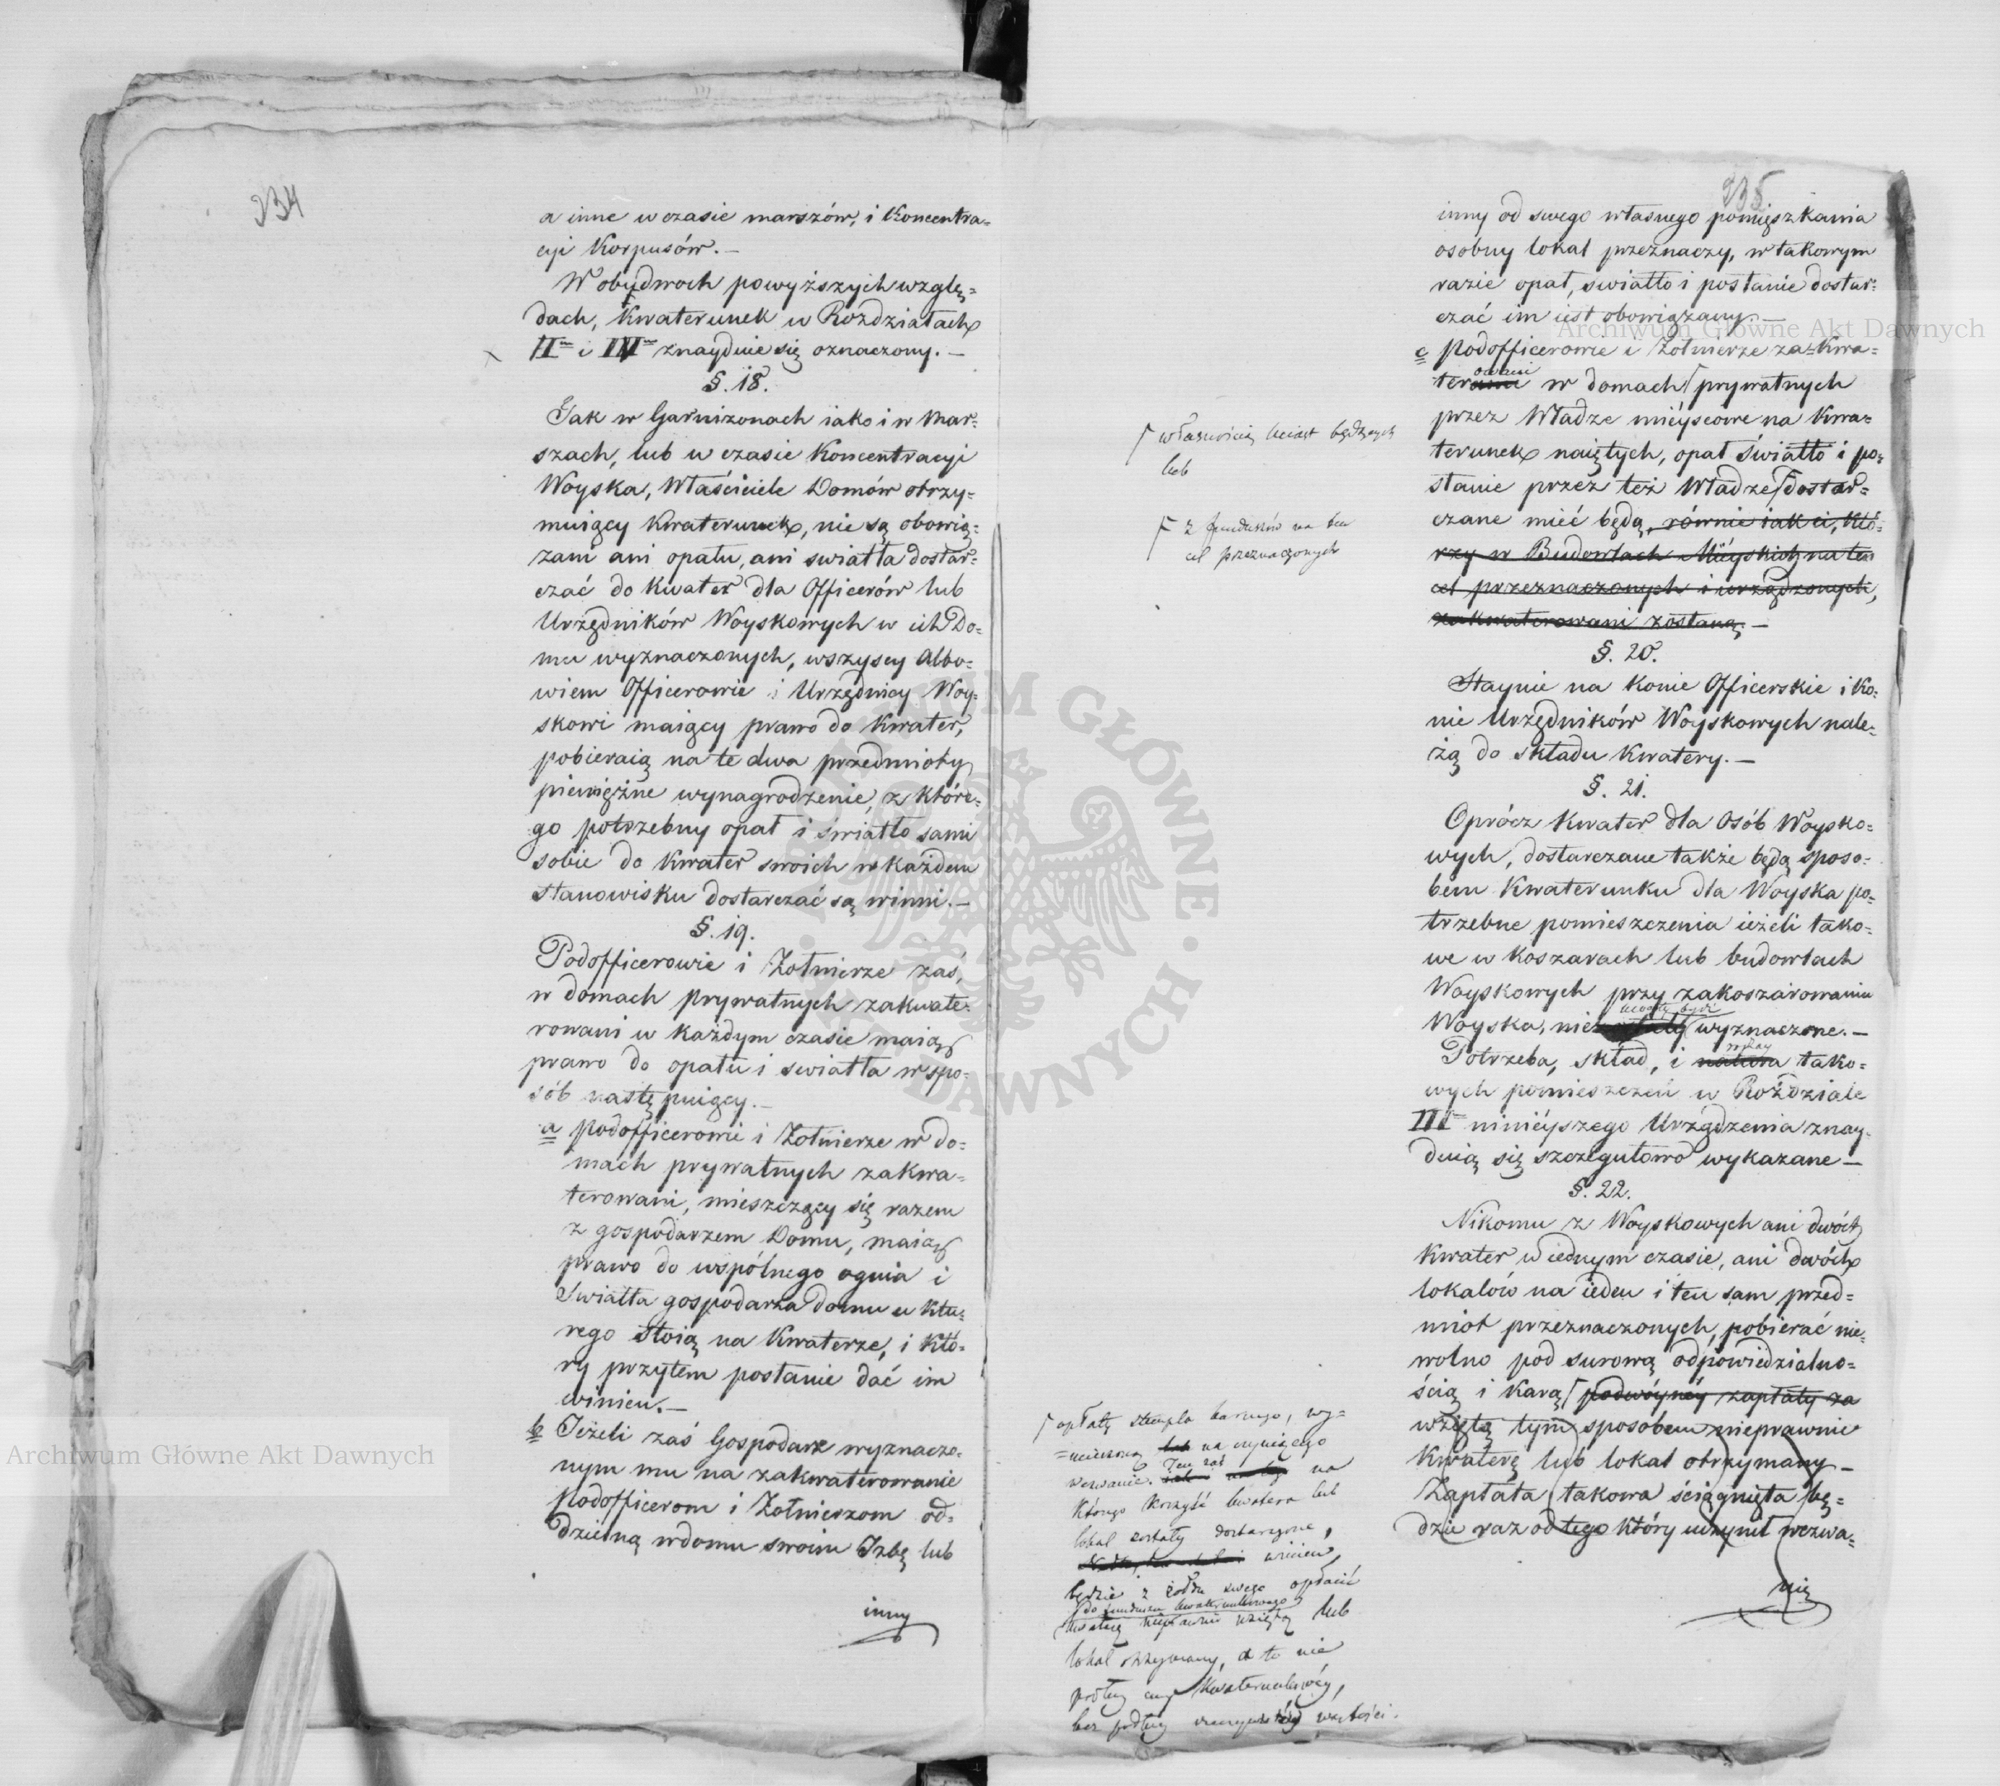 234
a inne w czasie marszów, i Koncentra=
cyi Korpusów.—
W obydwoch powyższych wzglę=
dach, Kwaterunek w Rozdziałach
II i IV znaydnie się oznaczony.—
§. 18.
Jak w Garnizonach iako i w Mar=
szach, lub w czasie Koncentracyi
Woyska, Właściciele Domów otrzy=
muiący Kwaterunek, nie są obowią=
zani ani opału, ani swiatła dostar=
czać do Kwater dla Officerów lub
Urzędników Woyskowych w ich Do=
mu wyznaczonych, wszyscy Albo=
wiem Officerowie i Urzędnicy Woy=
skowi maiący prawo do Kwater,
pobieraią na te dwa przedmioty
pieniężne wynagrodzenie, z które=
go potrzebny opał i światło sami
sobie do Kwater swoich w każdem
Stanowisku dostarczać są winni.—
§. 19.
Podofficerowie i Żołnierze zaś,
w domach prywatnych zakwate=
rowani w każdym czasie maią
prawo do opału i swiatła w spo=
sób następuiący.—
a podofficerowie i Żołnierze w do=
mach prywatnych zakwa=
terowani, mieszczący się razem
z gospodarzem Domu, maią
prawo do wspólnego ognia i
Swiatła gospodarza domu u któ=
rego stoią na Kwaterze, i któ=
ry przytem posłanie dać im
winien.—
b Jeżeli zaś Gospodarz wyznaczo=
nym mu na zakwaterowanie
podofficerom i Żołnierzom od=
dzielną w domu swoim Izbę lub
inny
235
inny od swego własnego pomięszkania
osóbny lokal przeznaczy, w takowym
razie opał, swiatło i posłanie dostar=
czać im iest obowiązany.—
c podofficerowie i Żołnierze za=Kwa=
terowani w domach prywatnych
przez Władze mieyscowe na Kwa=
terunek naiętych, opał światło i po=
słanie przez też Władze dostar=
czane mieć będą, równie iak ci, któ=
rzy w Budowlach Mieyskich na ten
cel przeznaczonych i urządzonych,
zakwaterowani zostaną.—
właścicieli
lub
z funduszów na ten
cel przeznaczonych
§. 20.
Staynie na Konie Officerskie i Ko=
nie Urzędników Woyskowych nale=
żą do składu Kwatery.—
§. 21.
Oprócz Kwater dla Osób Woysko=
wych, dostarczane także będą sposo=
bem Kwaterunku dla Woyska po=
trzebne pomieszczenia ieżeli tako=
we w Koszarach lub budowlach
Woyskowych przy zakoszarowaniu
mogły być
Woyska, nie wyznaczone.—
Potrzeba, skład, i natura tako=
wych pomieszczeń w Rozdziale
III ninieyszego Urządzenia znay=
duią się szczegułowo wykazane—
§. 22.
Nikomu z Woyskowych ani dwóch
Kwater w iednym czasie, ani dwóch
lokalów na ieden i ten sam przed=
miot przeznaczonych, pobierać nie=
wolno pod surową odpowiedzialno=
ścią i Karą podwóyney zapłaty za
wziętą tym sposobem nieprawnie
Kwaterę lub lokal otrzymany—
Zapłata takowa ściągnięta bę=
dzie raz od tego który uczynił wezwa=
nie
opłaty
wezwanie. Ten zaś na
którego Korzyść kwatera lub
lokal zostały dostarczone,
winien
będzie z żołdu swego opłacić
do funduszu kwaterunkowego
nieprawnie wziętą lub
lokal otrzymany, a to nie
podług Kwaterunkowéy,
lecz podług wartości.
Archiwum Główne Akt Dawnych
Archiwum Główne Akt Dawnych
ARCHIWUM GŁÓWNE AKT DAWNYCH